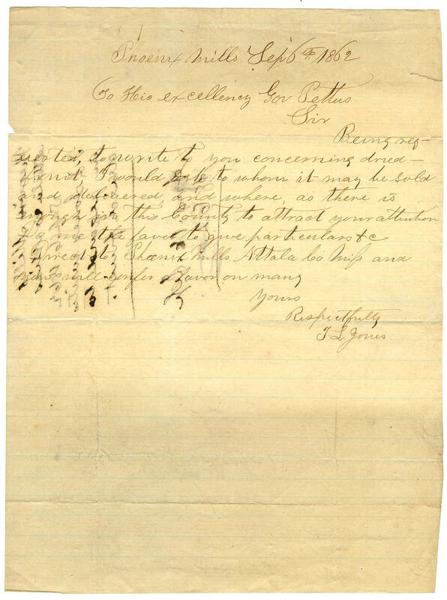 Phoenix Mills Sep 6th 1862
To His excellency Gov Pettus
Sir
Being req-
uested to write to you concerning dried
I would to whom it may be sold
and delivered and where, as there is
enough in this County to attract your attention
me the favor to give particulars &c
Direct to Phoenix Mills Attala Co Miss and
confer a favor on many
Yours
Respectfully
T L Jones